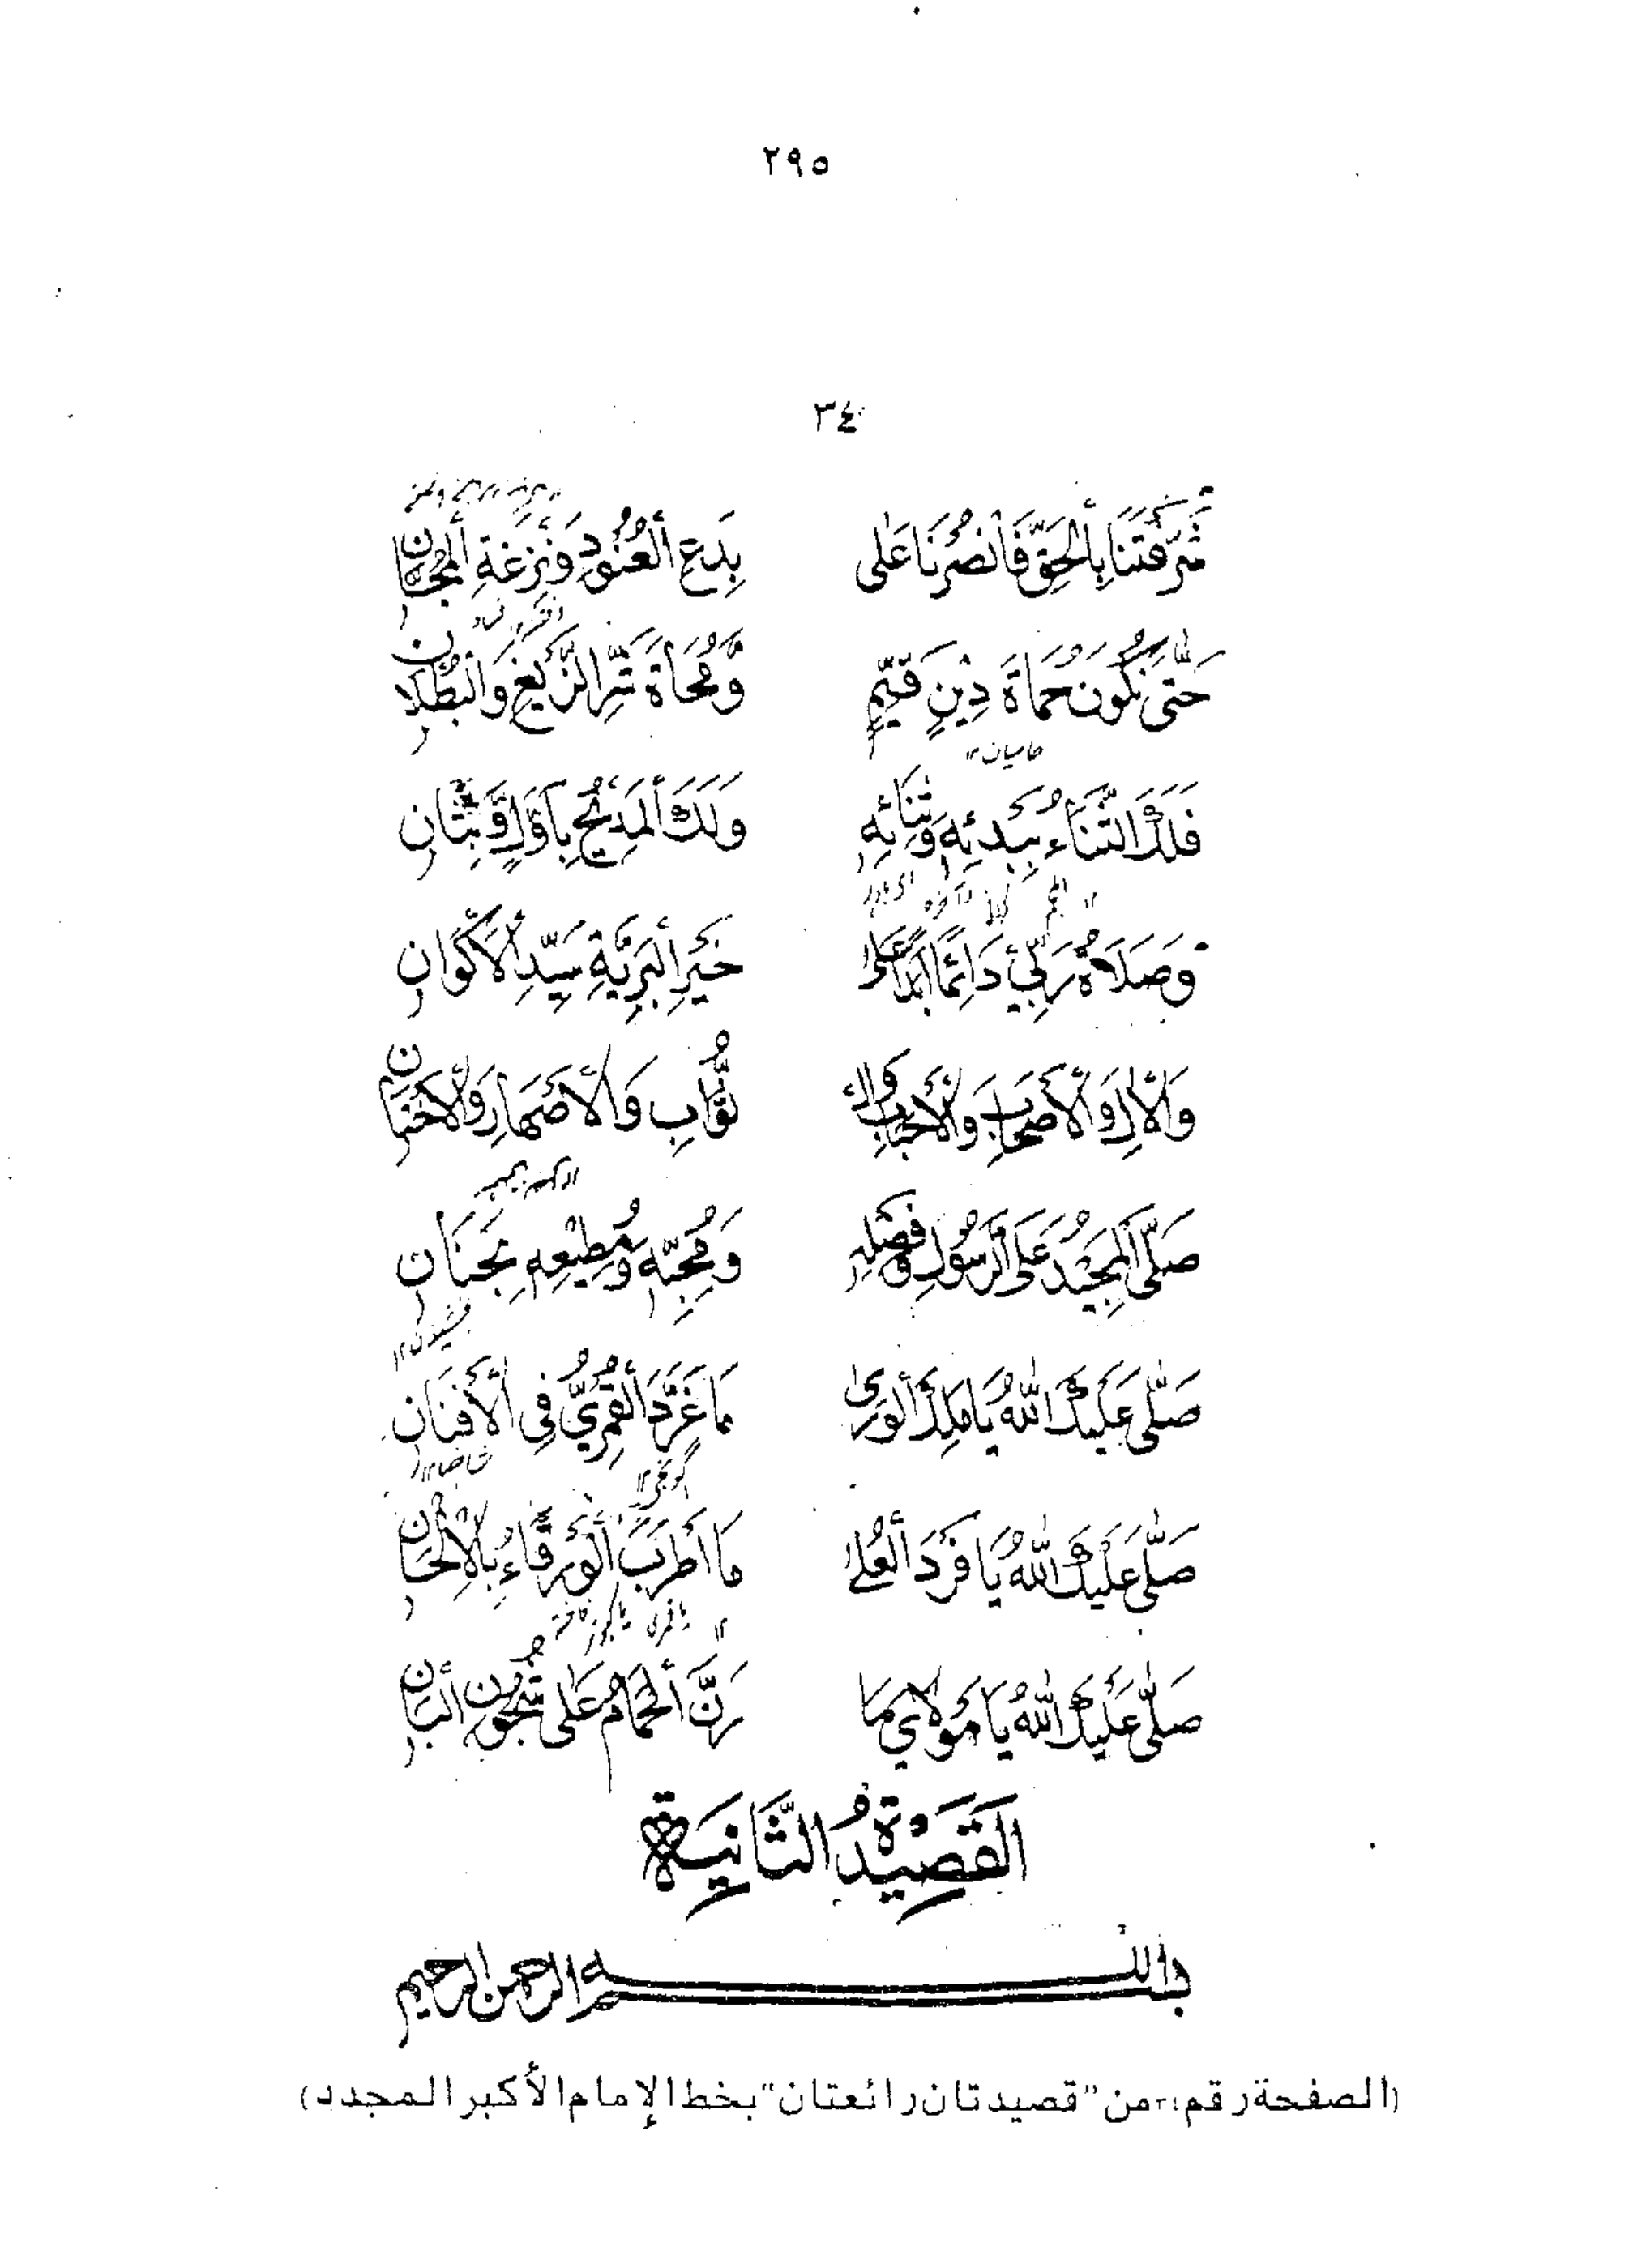 ٢٩٥
٣٤
شَرَّفْتَنَا بِالْحَقِّ فَانْصُرْنَا عَلٰى بِدَعِ الْعُنُودِ وَنَزْغَةِ الْمَجَّانِ
حَتّٰى نَكُونَ حُمَاةَ دِيْنٍ قَيِّمٍ وَّمُحَاةَ شَرِّ الزَّيْغِ وَالْبُطْلَانِ
حامیان۱۲
فَلَكَ الثَّنَاءُ بِبَدْئِهِ وَثِنَائِهِ وَلَكَ الْمَدِيْحُ بِأَوَّلٍ وَّبِثَانِ
وَصَلَاةُ رَبِّيْ دَائِمًا أَبَدًا عَلٰى خَيْرِ الْبَرِيَّةِ سَيِّدِ الْأَكْوَانِ
وَالْآلِ وَالْأَصْحَابِ وَالْأَحْبَابِ وَالـ نُّوَّابِ وَالْأَصْهَارِ وَالْأَخْتَانِ
صَلَّى الْمَجِيْدُ عَلَى الرَّسُوْلِ وَفَضْلِهِ وَمُحِبِّهِ وَمُطِيْعِهِ بِحَنَانِ
صَلّٰى عَلَيْكَ اللّٰهُ يَا مَلِكَ الْوَرٰى مَا غَرَّدَ الْقُمْرِيُّ فِي الْأَفْنَانِ
صَلّٰى عَلَيْكَ اللّٰهُ يَا فَرْدَ الْعُلٰى مَا أَطْرَبَ الْوَرْقَاءُ بِالْأَلْحَانِ
صَلّٰى عَلَيْكَ اللّٰهُ يَا مَوْلَايَ مَا رَنَّ الْحَمَامُ عَلٰى شُجُوْنِ الْبَانِ
الْقَصِيْدَةُ الثَّانِيَةُ
بسم الله الرحمن الرحيم
(الصفحة رقم من "قصيدتان رائعتان" بخط الإمام الأكبر المجدد)